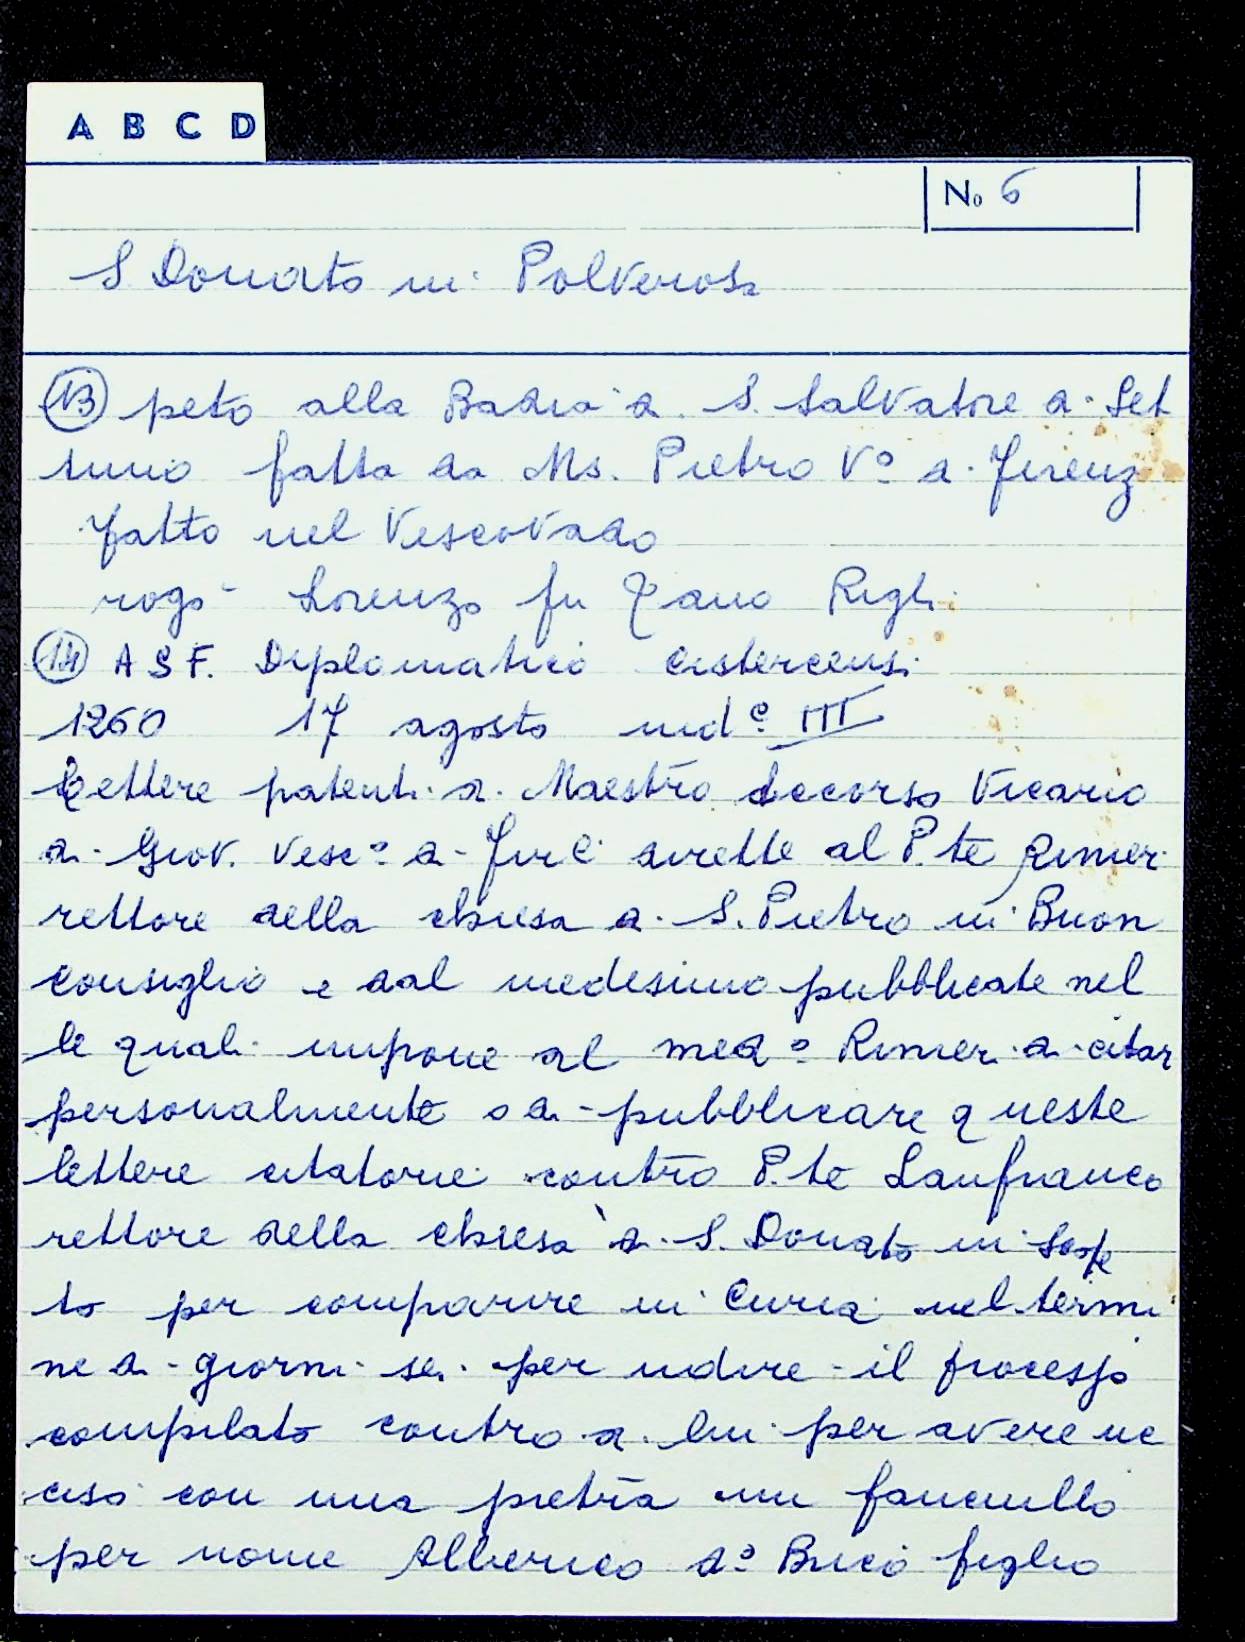 A B C D
No 6
S. Donato in Polverosa
(13) peto alla Badia di S. Salvatore a Set
timo fatta da Ms. Pietro Vº di Firenz
fatto nel Vescovado
rogò Lorenzo fu Tano Righi
(14) A S F. Diplomatico Cistercensi
1260 17 agosto indº III
Lettere patenti di Maestro Secorso Vicario
di Giov. Vescº di Fire dirette al P.te Rinieri
rettore della chiesa di S. Pietro in Buon
consiglio e dal medesimo pubblicate nel
le quali impone al medº Rinieri di citar
personalmente o di pubblicare queste
lettere citatorie contro P.te Lanfranco
rettore della chiesa di S. Donato in Scope
to per comparire in Curia nel termi
ne di giorni sei per udire il processo
compilato contro di lui per avere uc
ciso con una pietra un fanciullo
per nome Alberico dº Bucio figlio